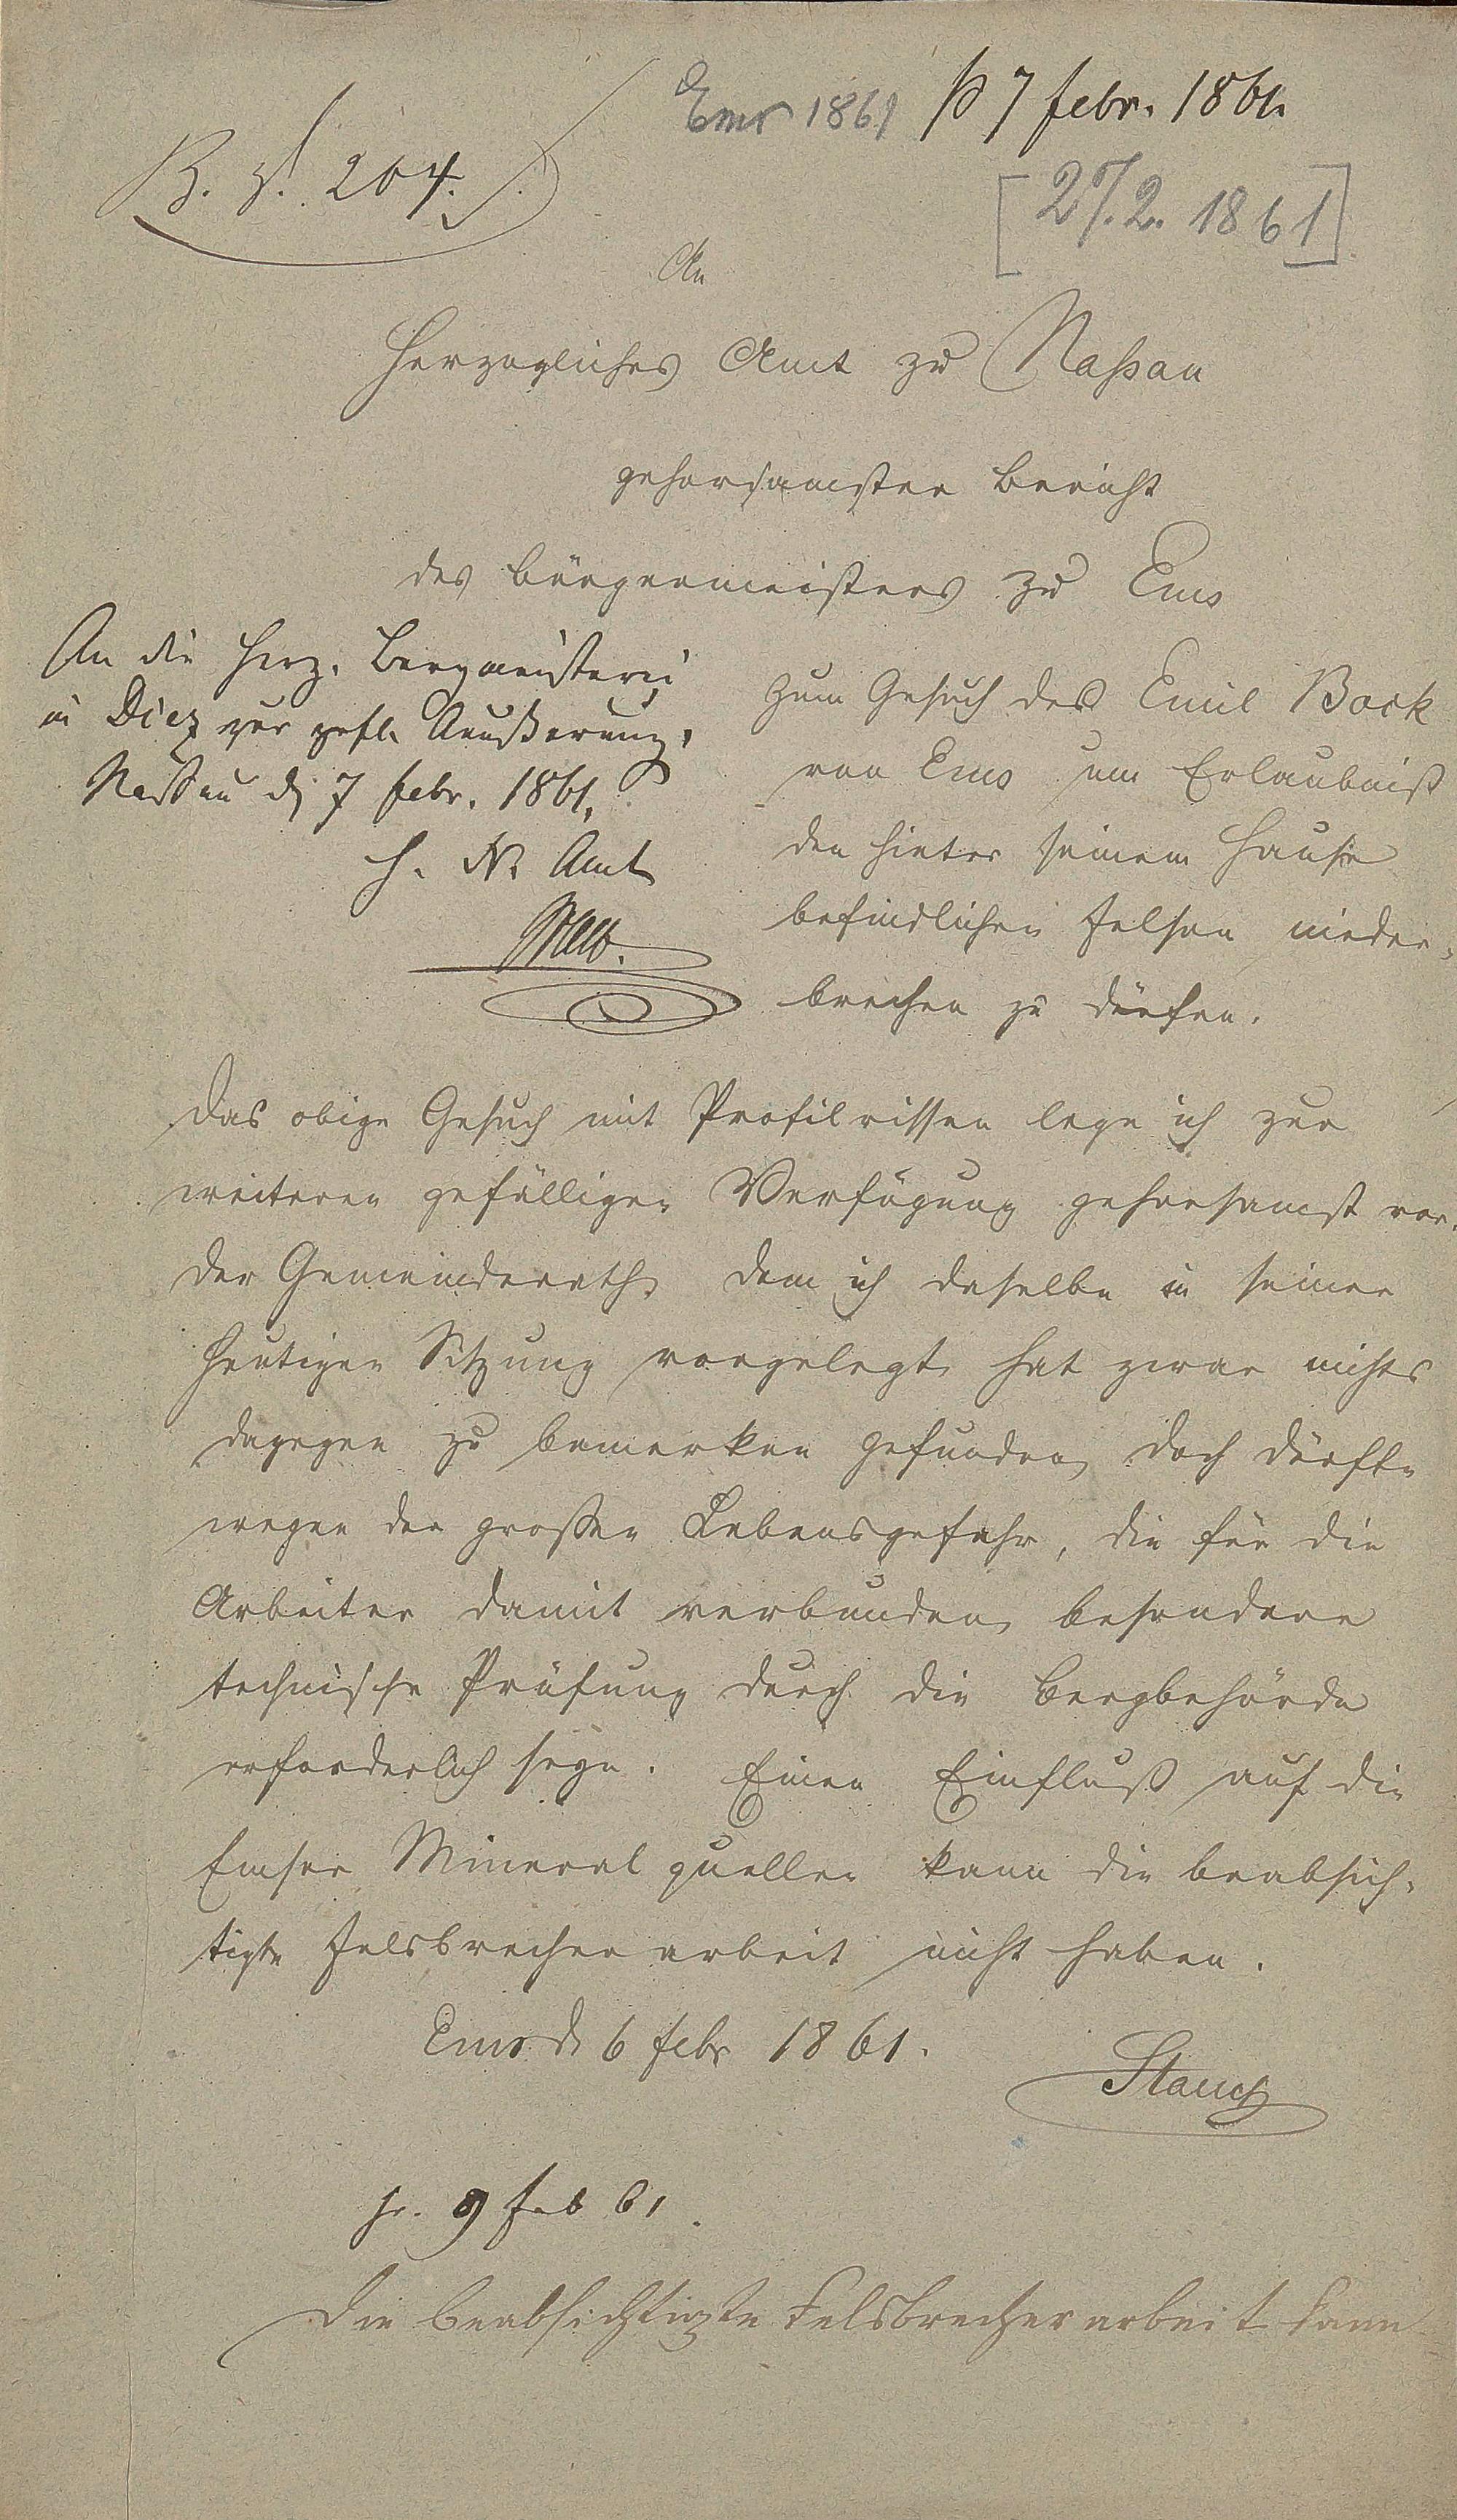 Ems 1861 ps 7 Febr. 1861.
B. H. 204.
[27.2. 1861]
An
Herzogliches Amt zu Naßau
gehorsamster Bericht
des Bürgermeisters zu Ems
An die Herz. Bergmeisterei
in Diez zur gefl. Äußerung.
Nassau d 7 Febr. 1861.
H. N. Amt
zum Gesuch des Emil Bock
von Ems um Erlaubniß
den hinter seinem Hause
befindlichen Felsen nieder-
brechen zu dürfen.
Das obige Gesuch mit Profilrissen lege ich zur
weiteren gefälligen Verfügung gehorsamst vor.
Der Gemeinderath, dem ich daselbe in seiner
heutigen Sitzung vorgelegt, hat zwar nichts
dagegen zu bemerken gefunden, doch dürfte
wegen der großen Lebensgefahr, die für die
Arbeiter damit verbunden, besondere
technische Prüfung durch die Bergbehörde
erforderlich seyn. Einen Einfluß auf die
Emser Mineralquellen kann die beabsich-
tigte Felsbrecherarbeit nicht haben.
Ems d 6 Febr 1861.
Stauch
pr. 9 Feb 61.
Die beabsichtigte Felsbrecherarbeit kann